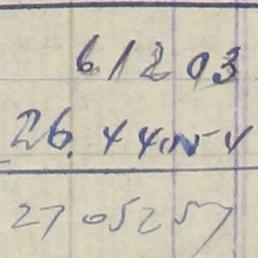 61203
26.44054
2705257